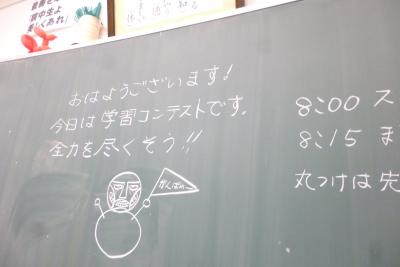 おはようございます!
今日は学習コンテストです。
全力を尽くそう!!
がんばれー
8:00 ス
8:15 ま
丸つけは先